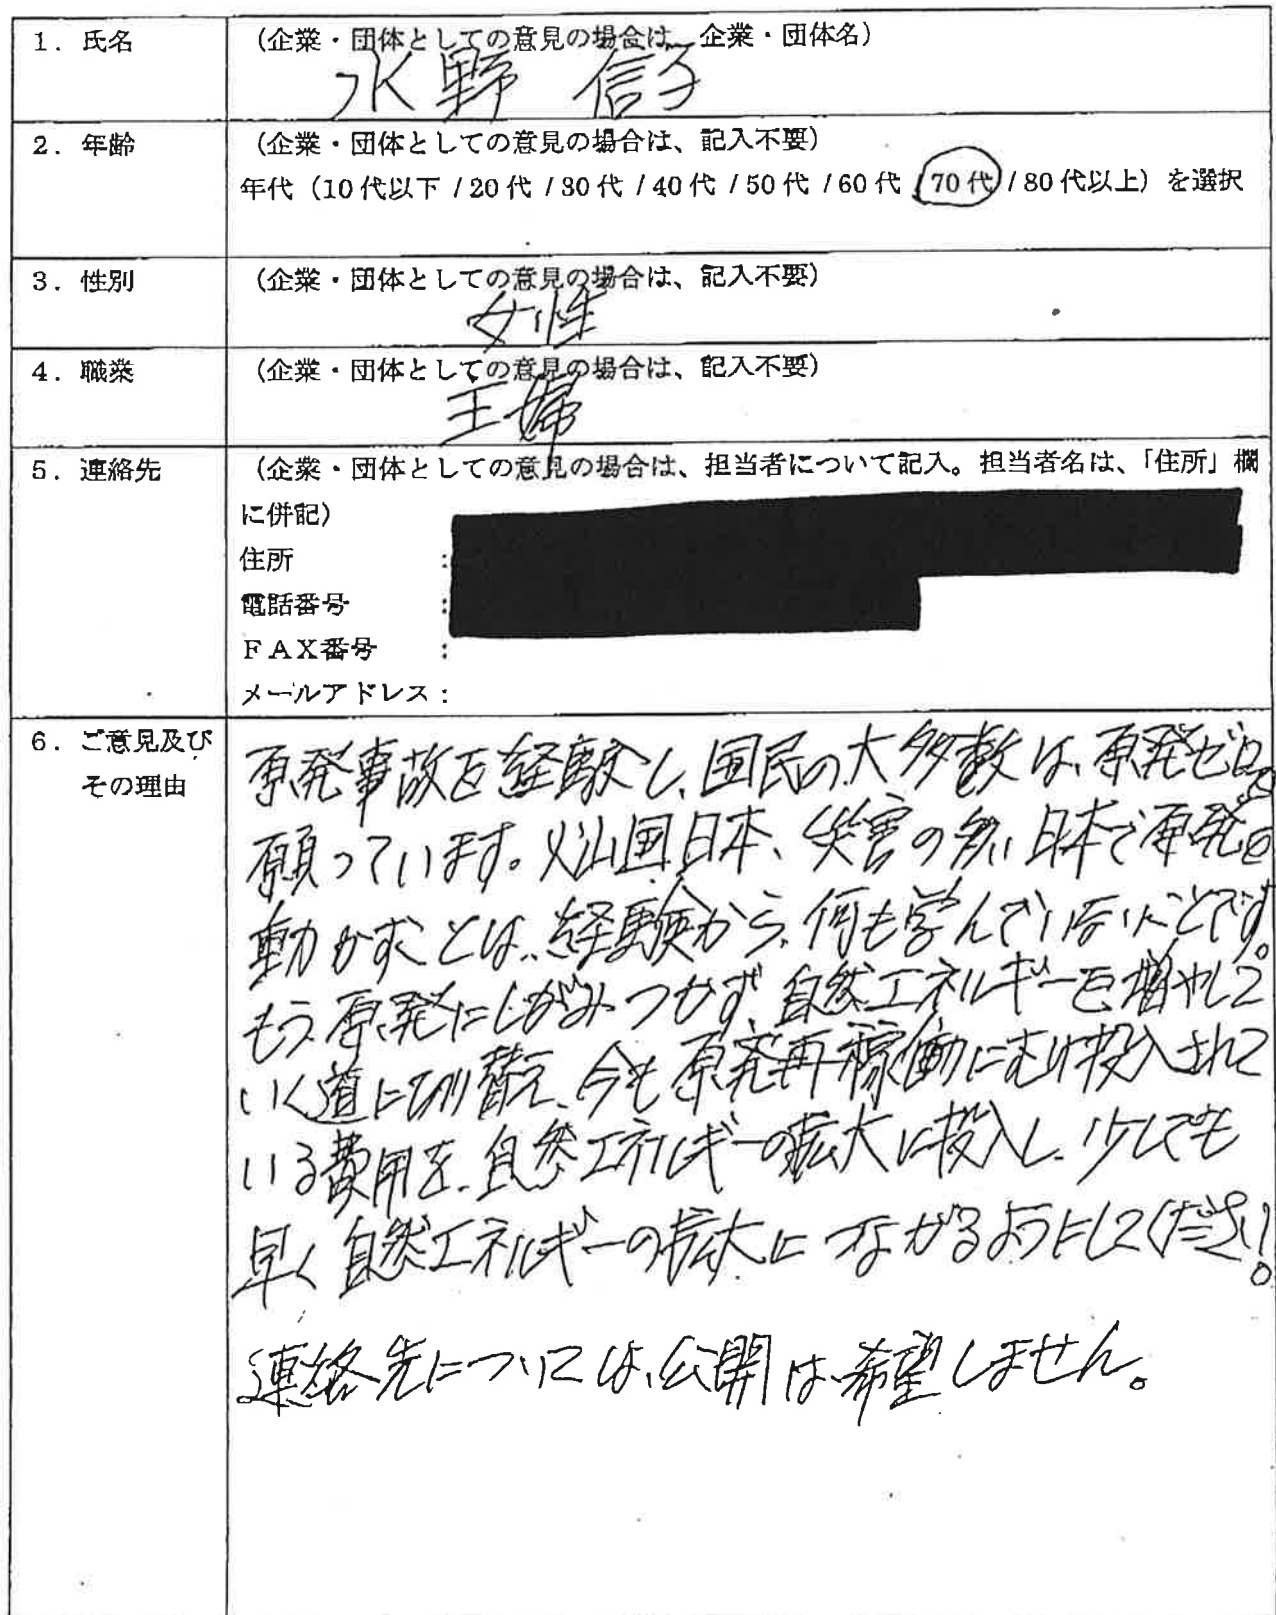 1．氏名
（企業・団体としての意見の場合は、企業・団体名）
水野 信子
2．年齢
（企業・団体としての意見の場合は、記入不要）
年代（10代以下 / 20代 / 30代 / 40代 / 50代 / 60代 / 70代 / 80代以上）を選択
3．性別
（企業・団体としての意見の場合は、記入不要）
女性
4．職業
（企業・団体としての意見の場合は、記入不要）
主婦
5．連絡先
（企業・団体としての意見の場合は、担当者について記入。担当者名は、「住所」欄
に併記）
住所 ：
電話番号 ：
ＦＡＸ番号 ：
メールアドレス：
6．ご意見及び
その理由
原発事故を経験し、国民の大多数は、原発ゼロを
願っています。火山国日本、災害の多い日本で原発を
動かすことは、経験から、何も学んでいないことです。
もう原発にしがみつかず、自然エネルギーを増やして
いく道に切り替え、今も原発再稼働に投入されて
いる費用を、自然エネルギーの拡大に投入し、少しでも
早く自然エネルギーの拡大につながるようにしてください。
連絡先については、公開は希望しません。